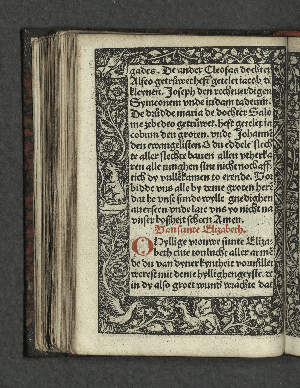 gades. De ander Cleofas dochter
Alfeo getrüwet heft getelet iacob dē
kleynen. Joseph den rechtuerdigen
Symeonem vnde iudam tadeum.
De drüdde maria de dochter Salo
me zebedeo getrüwet. heft getelet ia
cobum den groten. vnde Johannē
den ewangelisten O du eddele slech
te aller slechte bauen allen
alle
dy vullekamen to erende. Vor
bidde vns alle by dyme groten herē
dat he vns sunde wylle gnedighen
vorgeuen vnde late vns yo nicht na
vnser boßheit scheen Amen.
Van sunte Elizabeth.
O Hyllige vrouwe sunte Eliza
beth eine tonlucht aller armē
de du van dyner kyntheit voruüllet
werest mit deme hyllighen geyste. vn
in dy also groet wund wrachte dat